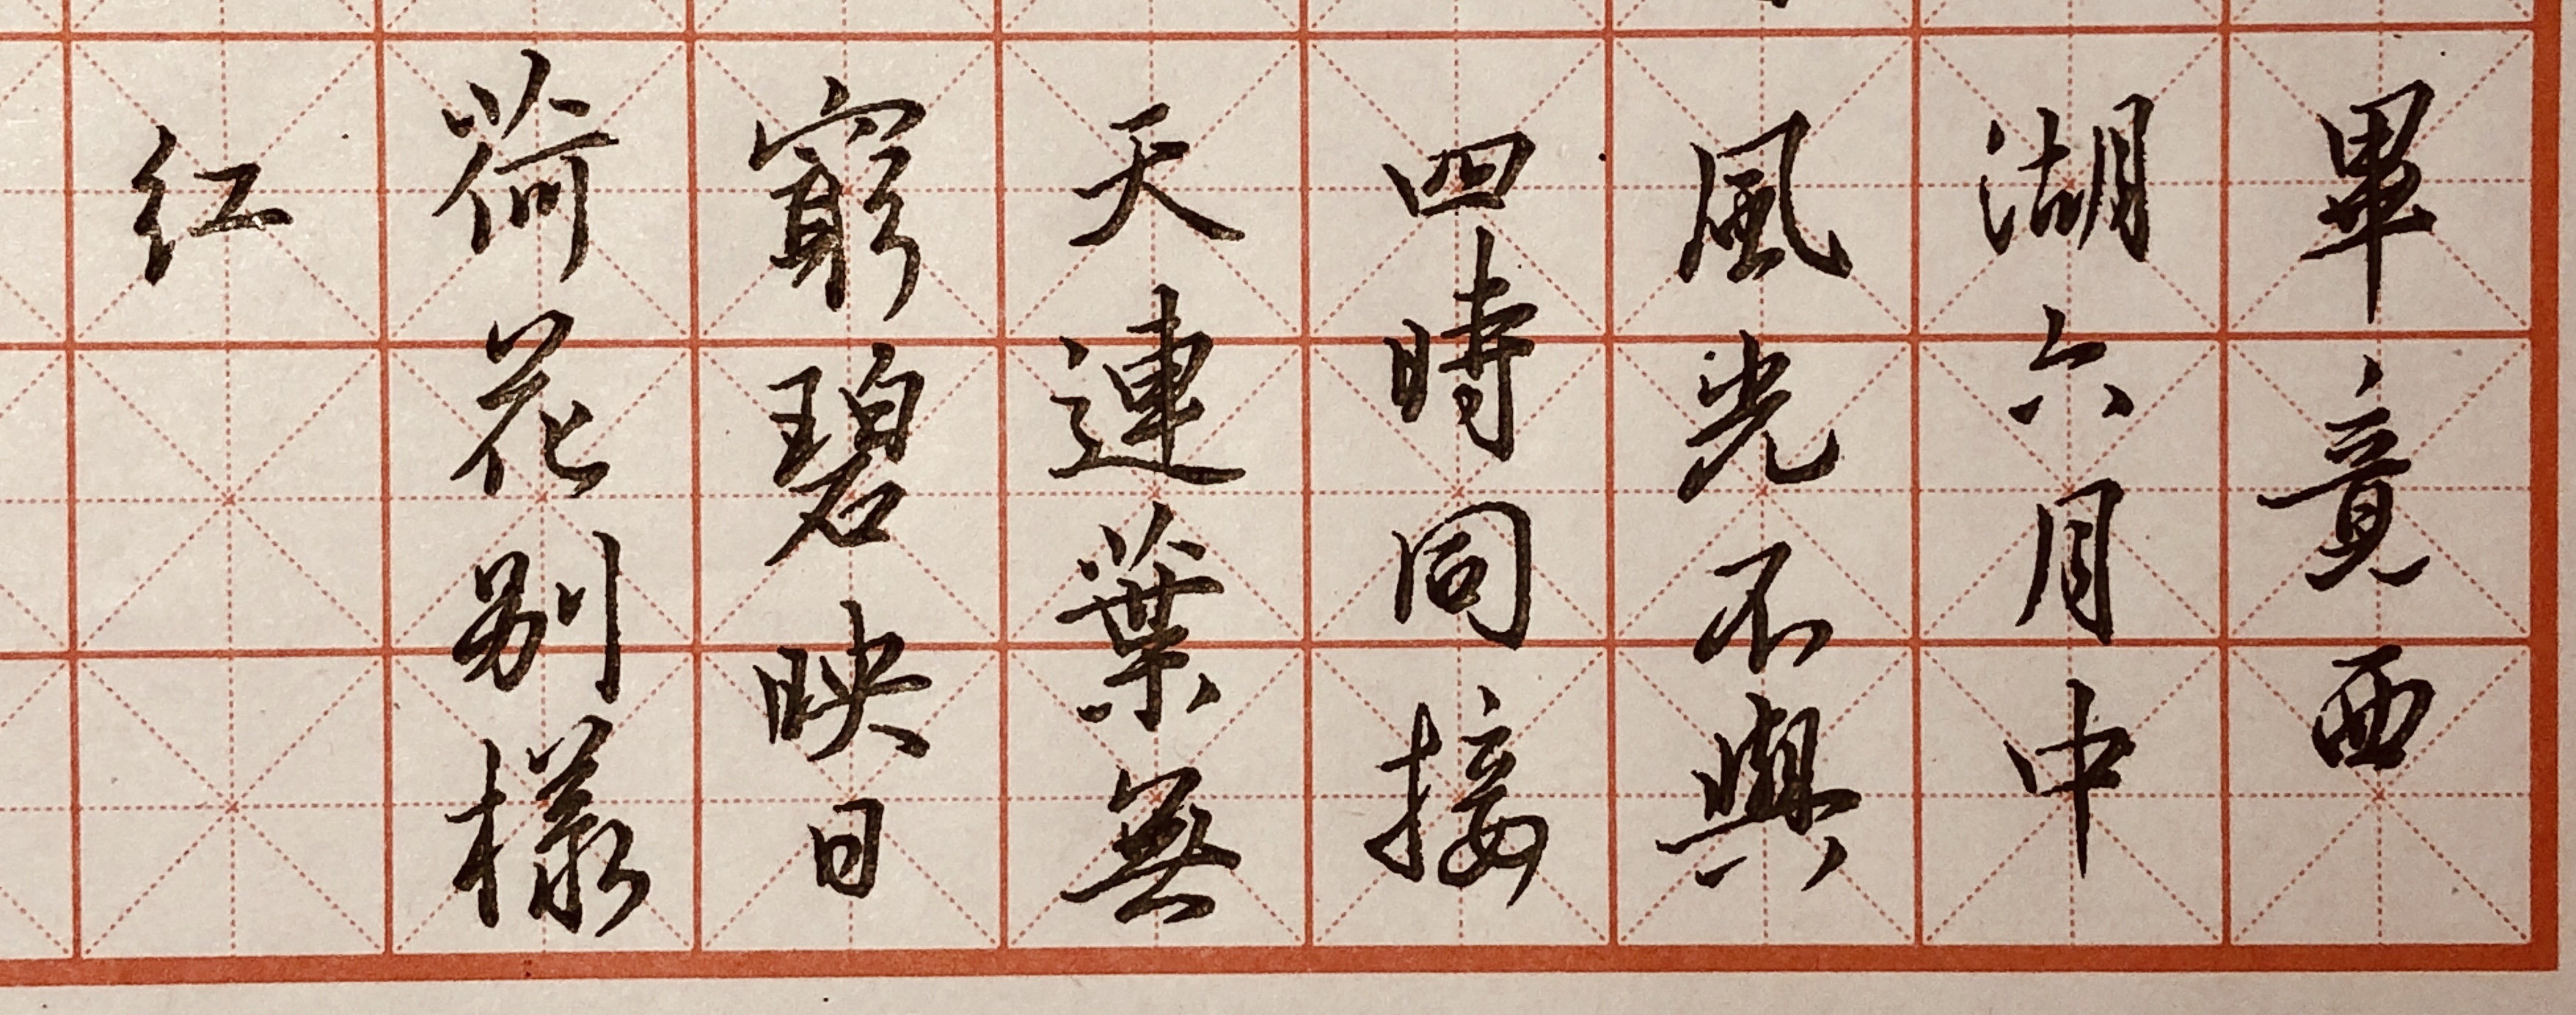 畢竟西
湖六月中
風光不與
四時同接
天連葉無
窮碧映日
荷花别樣
红